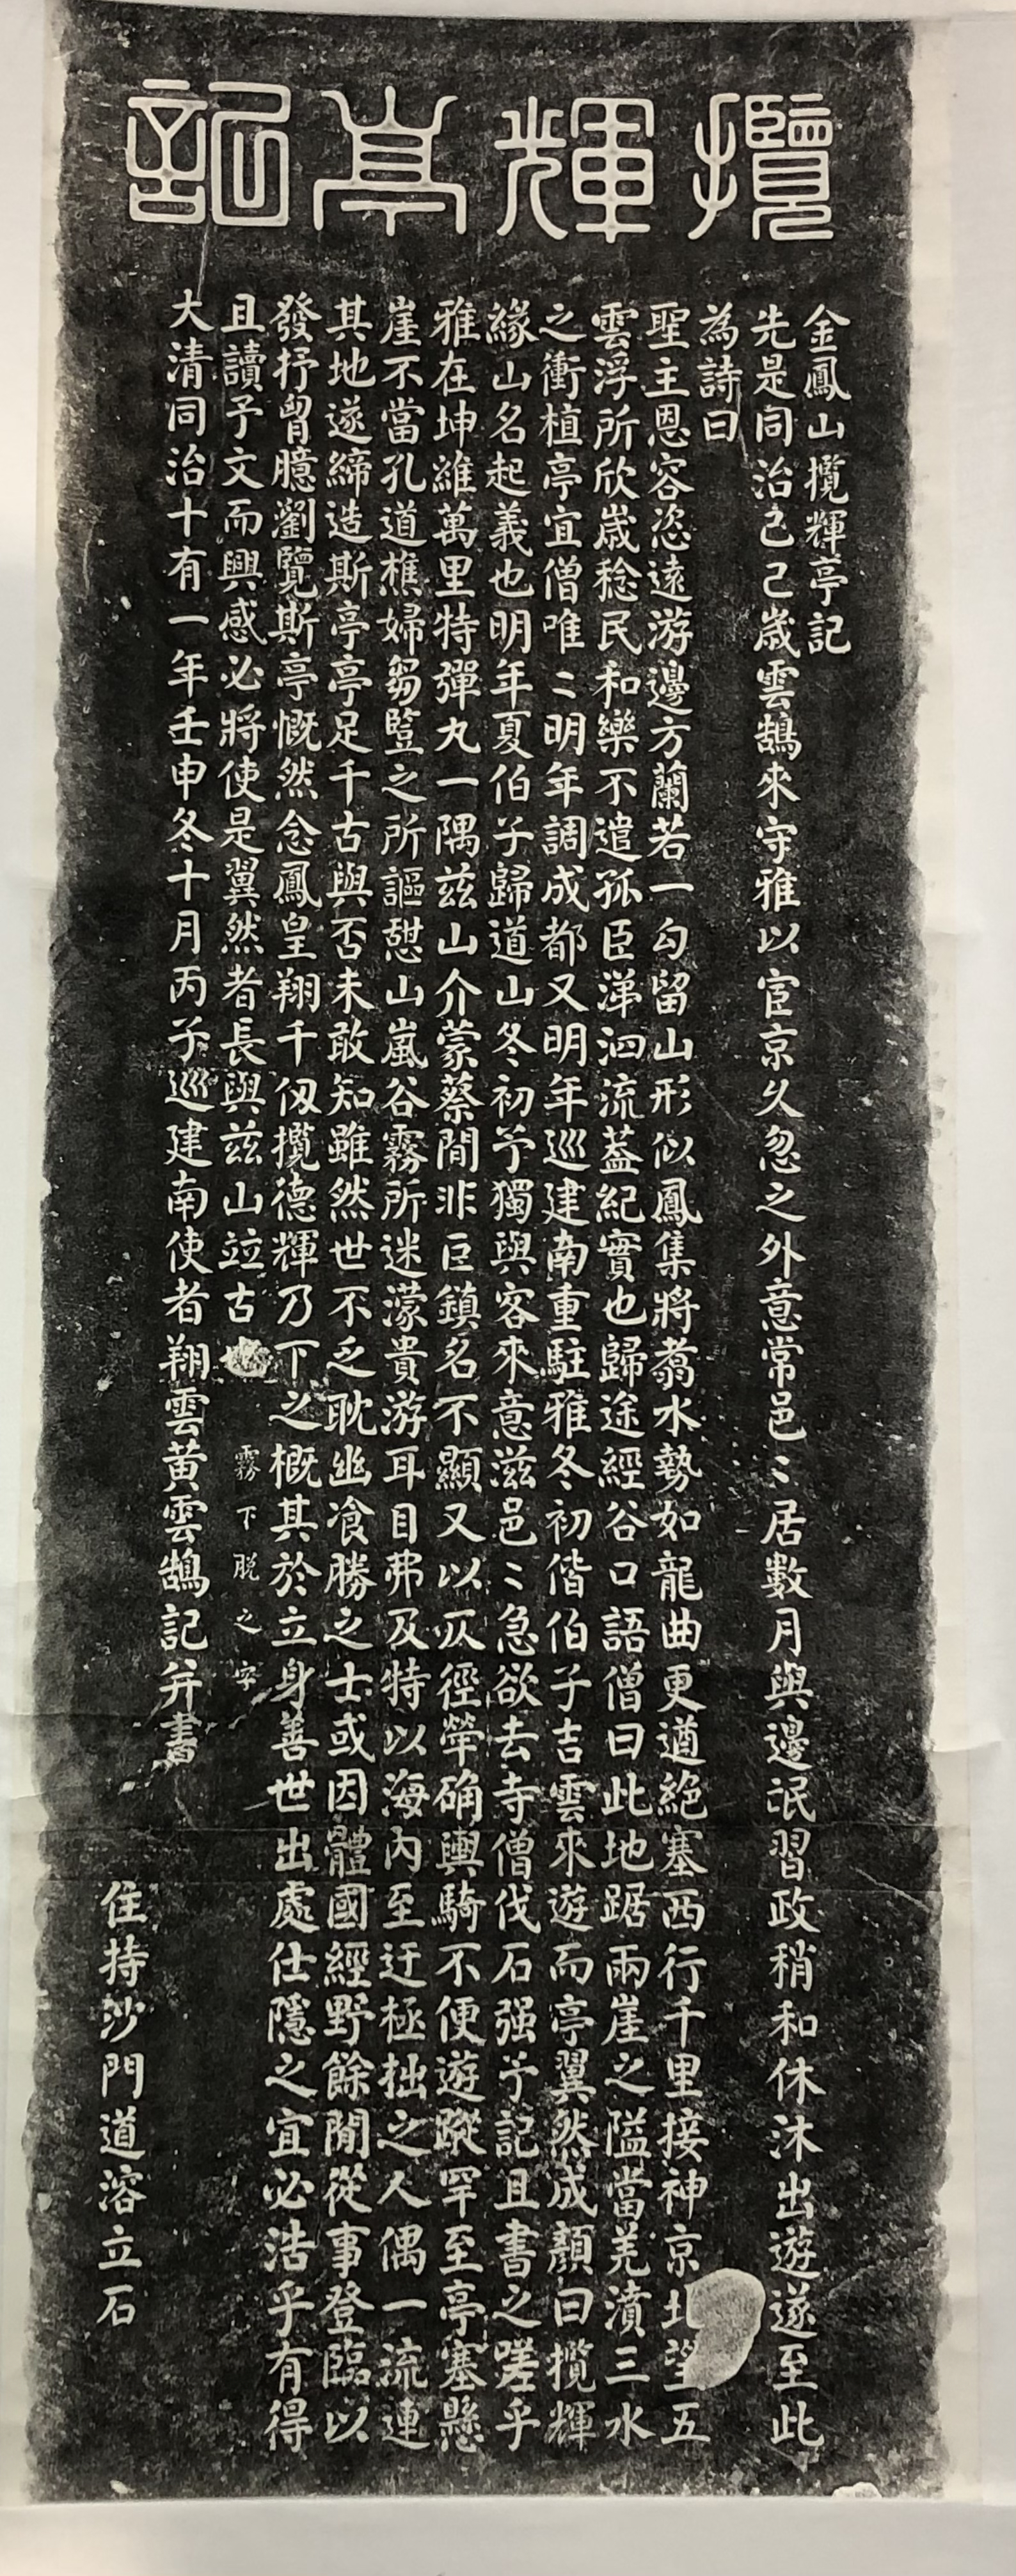 攬輝亭記
金鳳山攬輝亭記
先是同治己巳歲雲鵠來守雅以宦京久忽之外意常邑〻居數月與邊氓習政稍和休沐出遊遂至此
為詩曰
聖主恩容恣遠游邊方蘭若一勾留山形似鳳集將翥水勢如龍曲更遒絕塞西行千里接神京北望五
雲浮所欣歲稔民和樂不遣孤臣涕泗流葢紀實也歸途經谷口語僧曰此地踞兩崖之隘當羌瀆三水
之衝植亭宜僧唯〻明年調成都又明年巡建南重駐雅冬初偕伯子吉雲來遊而亭翼然成顏曰攬輝
緣山名起義也明年夏伯子歸道山冬初予獨與客來意滋邑〻急欲去寺僧伐石强予記且書之嗟乎
雅在坤維萬里特彈丸一隅茲山介蒙蔡間非巨鎮名不顯又以仄徑犖确輿騎不便遊蹤罕至亭塞懸
崖不當孔道樵婦芻豎之所謳憩山嵐谷霧所迷濛貴游耳目弗及特以海內至迂極拙之人偶一流連
其地遂締造斯亭亭足千古與否未敢知雖然世不乏耽幽飡勝之士或因體國經野餘閒從事登臨以
發抒胷臆瀏覽斯亭慨然念鳳皇翔千仞攬德輝乃下之概其於立身善世出處仕隱之宜必浩乎有得
且讀予文而興感必將使是翼然者長與茲山竝古 霧下脱之字
大清同治十有一年壬申冬十月丙子巡建南使者翔雲黄雲鵠記并書
住持沙門道溶立石